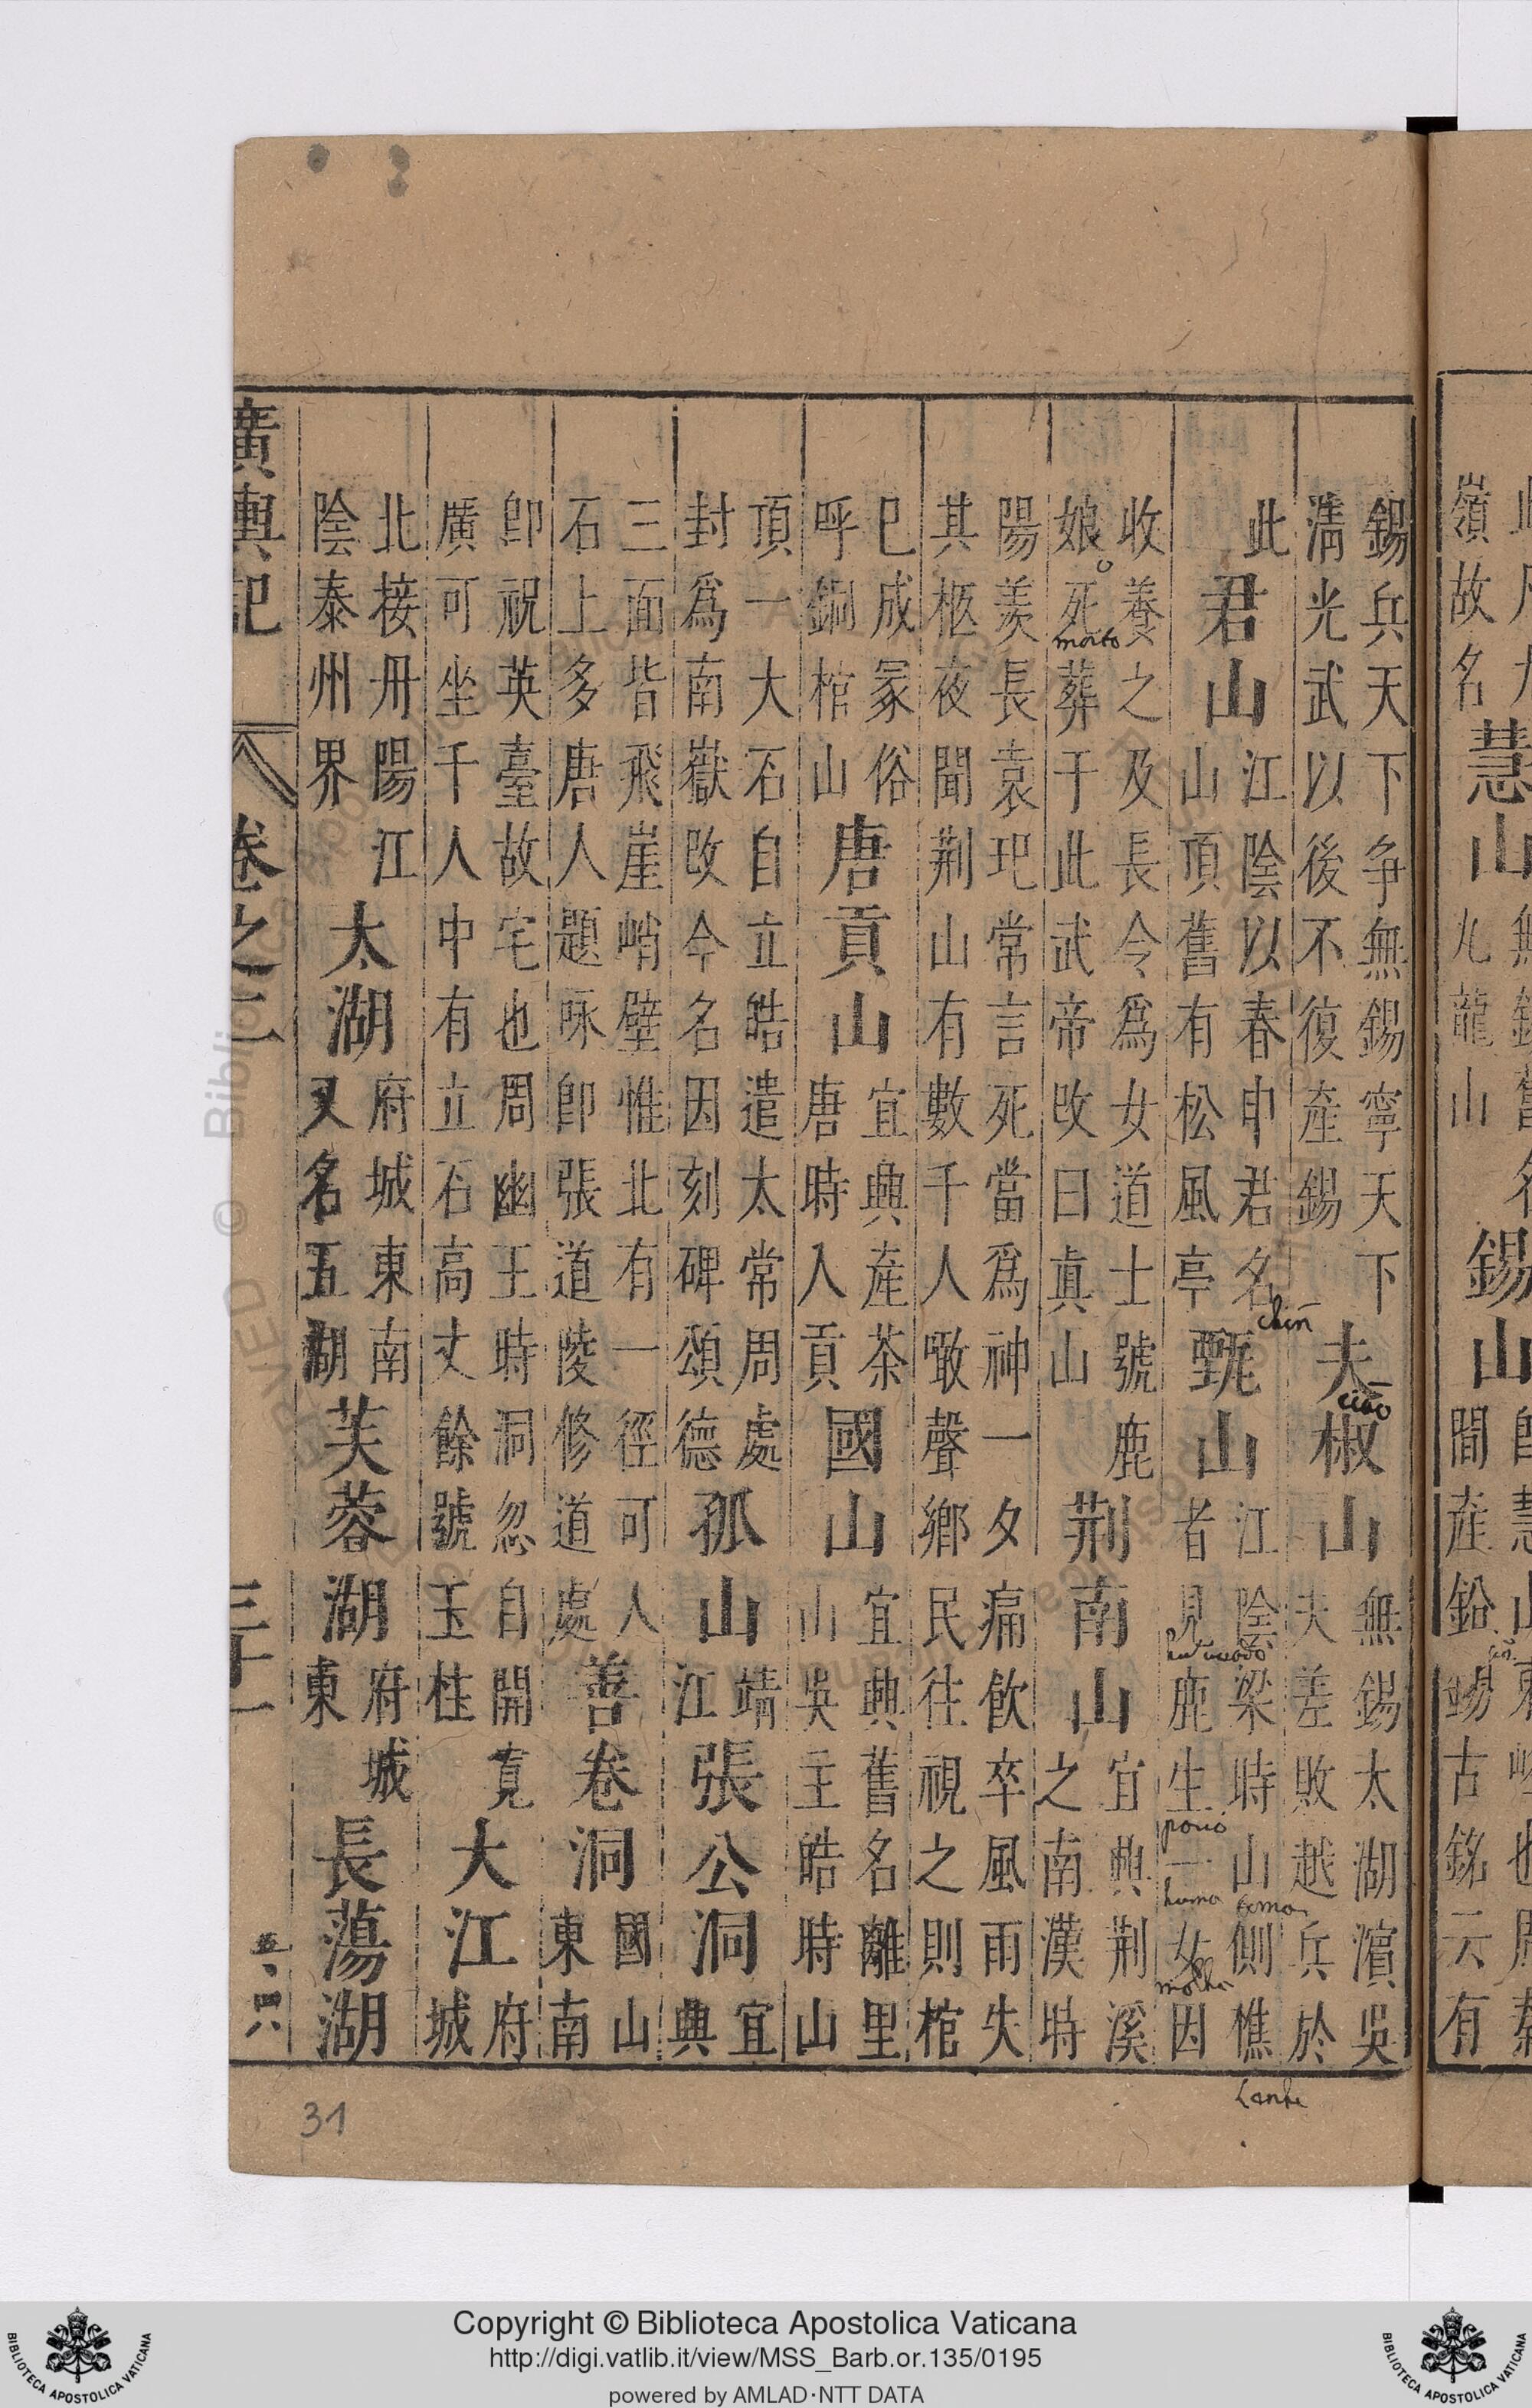 嶺故名
慧山
九龍山
錫山
間產鉛錫古銘云有
錫兵天下争無錫寧天下
淸光武以後不復產錫
夫椒山
無錫太湖濵吳
夫差敗越兵於
此
君山
江陰以春申君名
山頂舊有松風亭
甄山
江陰梁時山側樵
者見鹿生一女因
收養之及長令爲女道士號鹿
娘死葬于此武帝攺曰眞山
荆南山
宜興荆溪
之南漢時
陽羨長袁玘常言死當爲神一夕痛飲卒風雨失
其柩夜聞荆山有數千人噉聲鄉民往視之則棺
已成冢俗
呼銅棺山
唐貢山
宜興產茶
唐時入貢
國山
宜興舊名離里
山吳主皓時
頂一大石自立皓遣太常周處
封爲南嶽攺今名因刻碑頌德
孤山
靖
江
張公洞
宜
興
三面皆飛崖峭壁惟北有一徑可人
石上多唐人題咏卽張道陵修道處
善卷洞
國山
東南
卽祝英臺故宅也周幽王時洞忽自開寬
廣可坐千人中有立石高丈餘號玉柱
大江
府
城
北接丹陽江
陰泰州界
太湖
府城東南
又名五湖
芙蓉湖
府城
東
長蕩湖
廣輿記
卷之二
三十一
chin
ciao
morto
huma
molher
31
Copyright © Biblioteca Apostolica Vaticana
http://digi.vatlib.it/view/MSS_Barb.or.135/0195
powered by AMLAD·NTT DATA
BIBLIOTECA APOSTOLICA VATICANA
BIBLIOTECA APOSTOLICA VATICANA